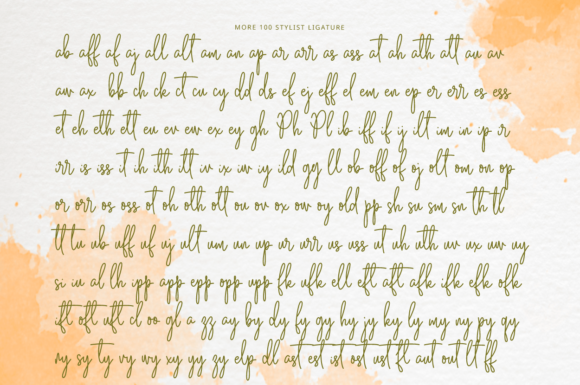 MORE 100 STYLIST LIGATURE
ab aff af aj all alt am an ap ar arr as ass at ah ath att au av
aw ax bb ch ck ct cu cy dd ds ef ej eff el em en ep er err es ess
et eh eth ett eu ev ew ex ey gh Ph Pl ib iff if ij ilt im in ip ir
irr is iss it ih ith itt iv ix iw iy ild gg ll ob off of oj olt om on op
or orr os oss ot oh oth ott ou ov ox ow oy old pp sh su sm sn th tl
tt tu ub uff uf uj ult um un up ur urr us uss ut uh uth uv ux uw uy
si iu al lh ipp app epp opp upp fk ufk ell eft aft afk ifk efk ofk
ift oft uft cl oo gl a zz ay by dy fy gy hy jy ky ly my ny py qy
ry sy ty vy wy xy yy zy elp dll ast est ist ost ust ft aut out lt ff